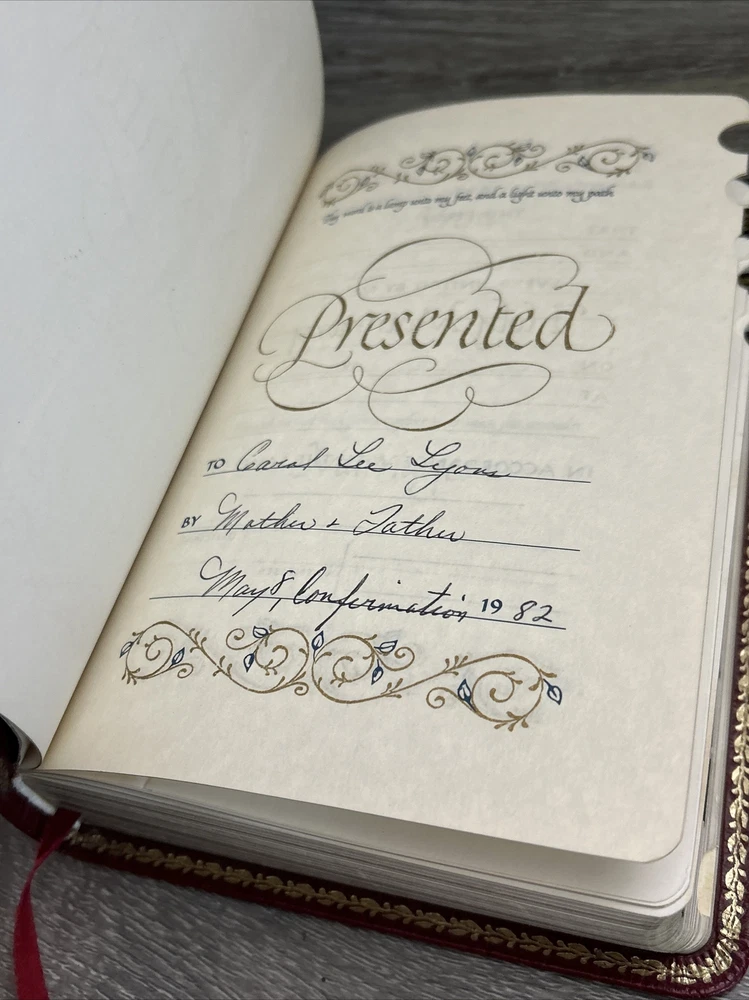 Thy word is a lamp unto my feet, and a light unto my path
Presented
TO Carol Lee Lyons
BY Mother & Father
May 8, Confirmation 19 82